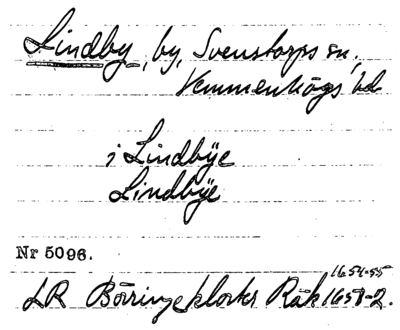 Lindby, by, Svenstorps sn,
Vemmenhögs hd
i Lindbÿe
Lindbÿe
Nr 5096.
1654-55
LR Böringeklosters Räk 1658-2.